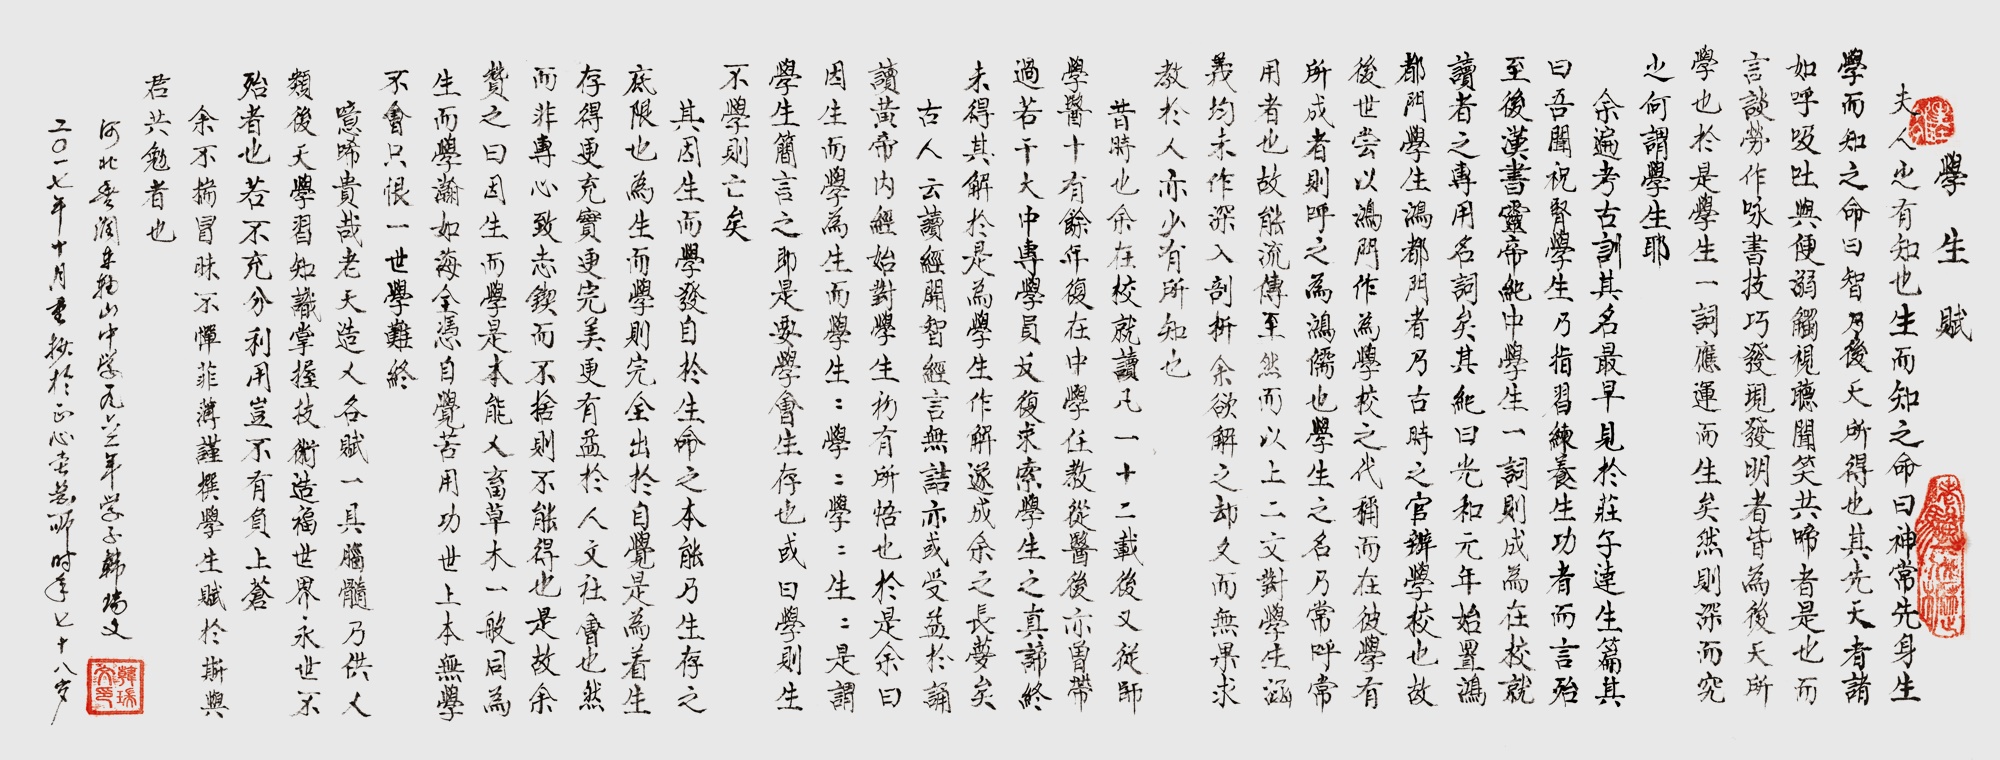 學生賦
夫人也有知也生而知之命曰神常先身生
學而知之命曰智乃後天所得也其先天者諸
如呼吸吐與便溺觸視聽聞笑共啼者是也而
言談勞作咏書技巧發現發明者皆為後天所
學也於是學生一詞應運而生矣然則深而究
之何謂學生耶
余遍考古訓其名最早見於莊子達生篇其
曰吾聞祝腎學生乃指習練養生功者而言殆
至後漢書靈帝紀中學生一詞則成為在校就
讀者之專用名詞矣其紀曰光和元年始置鴻
都門學生鴻都門者乃古時之官辦學校也故
後世嘗以鴻門作為學校之代稱而在彼學有
所成者則呼之為鴻儒也學生之名乃常呼常
用者也故能流傳至然而以上二文對學生涵
義均未作深入剖析余欲解之却久而無果求
教於人亦少有所知也
昔時也余在校就讀凡一十二載後又從師
學醫十有餘年復在中學任教從醫後亦曾帶
過若干大中專學員反復求索學生之真諦終
未得其解於是為學生作解遂成余之長夢矣
古人云讀經開智經言無詰亦或受益於誦
讀黃帝內經始對學生初有所悟也於是余曰
因生而學為生而學生：學：學：生：是謂
學生簡言之即是要學會生存也或曰學則生
不學則亡矣
其因生而學發自於生命之本能乃生存之
底限也為生而學則完全出於自覺是為着生
存得更充實更完美更有益於人文社會也然
而非專心致志鍥而不捨則不能得也是故余
贊之曰因生而學是本能人畜草木一般同為
生而學瀚如海全憑自覺苦用功世上本無學
不會只恨一世學難終
噫唏貴哉老天造人各賦一具腦髓乃供人
類後天學習知識掌握技術造福世界永世不
殆者也若不充分利用豈不有負上蒼
余不揣冒昧不憚菲薄謹撰學生賦於斯與
君共勉者也
河北 潤 山中學九六三年学子韩瑞文
二〇一七年十月重抄於正心 時年七十八岁
韓瑞文印